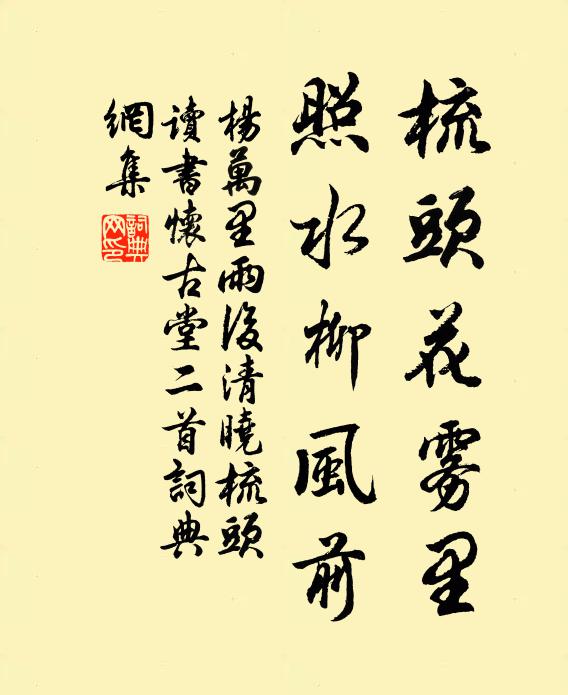 梳頭花雾里
照水柳風前
楊萬里雨後清曉梳頭
讀書懷古堂二首詞典
網集
詞典網印